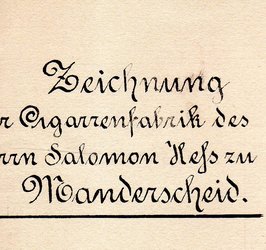 Zeichnung
r Cigarrenfabrik des
rrn Salomon Heſs zu
Manderscheid.